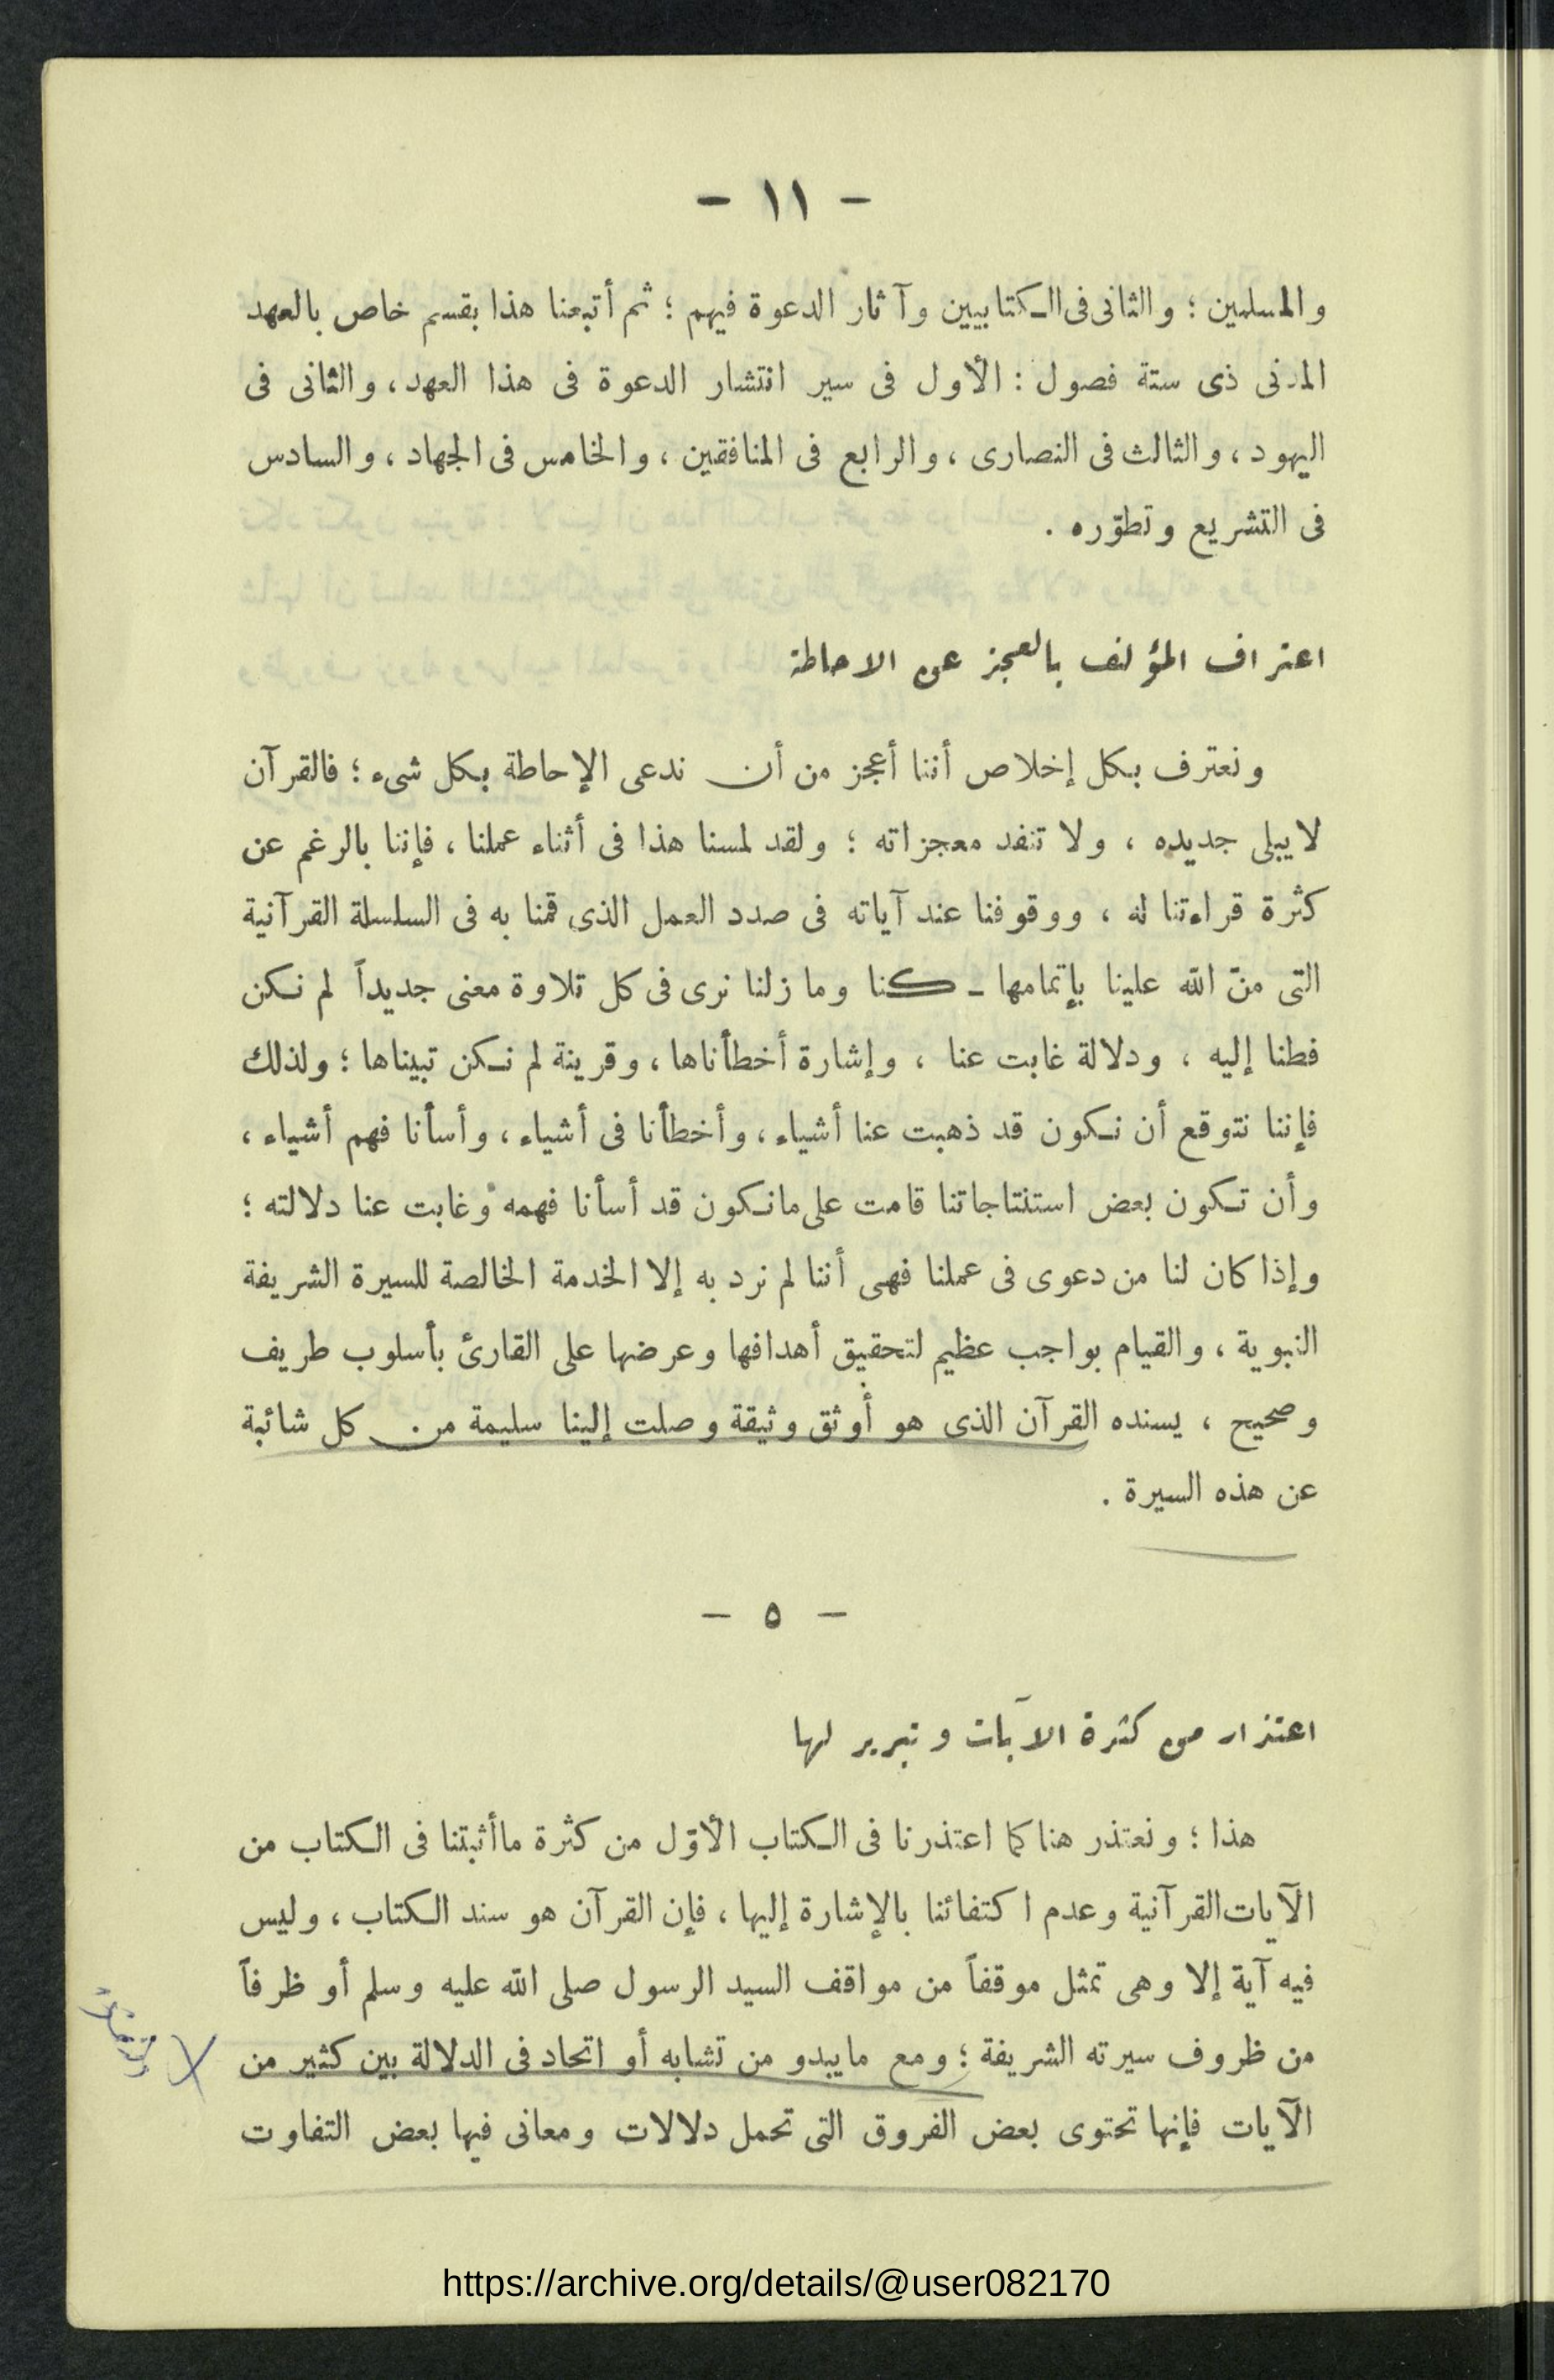 — ١١ —
والمسلمين ؛ والثانى فى الكتابيين وآثار الدعوة فيهم ؛ ثم أتبعنا هذا بقسم خاص بالعهد
المدنى ذى ستة فصول : الأول فى سير انتشار الدعوة فى هذا العهد ، والثانى فى
اليهود ، والثالث فى النصارى ، والرابع فى المنافقين ، والخامس فى الجهاد ، والسادس
فى التشريع وتطوّره .
اعتراف المؤلف بالعجز عن الاحاطة
ونعترف بكل إخلاص أننا أعجز من أن ندعى الإحاطة بكل شىء ؛ فالقرآن
لا يبلى جديده ، ولا تنفد معجزاته ؛ ولقد لمسنا هذا فى أثناء عملنا ، فإننا بالرغم عن
كثرة قراءتنا له ، ووقوفنا عند آياته فى صدد العمل الذى قمنا به فى السلسلة القرآنية
التى منّ الله علينا بإتمامها ـ كنا وما زلنا نرى فى كل تلاوة معنى جديداً لم نكن
فطنا إليه ، ودلالة غابت عنا ، وإشارة أخطأناها ، وقرينة لم نكن تبيناها ؛ ولذلك
فإننا نتوقع أن نكون قد ذهبت عنا أشياء ، وأخطأنا فى أشياء ، وأسأنا فهم أشياء ،
وأن تكون بعض استنتاجاتنا قامت على ما نكون قد أسأنا فهمه وغابت عنا دلالته ؛
وإذا كان لنا من دعوى فى عملنا فهى أننا لم نرد به إلا الخدمة الخالصة للسيرة الشريفة
النبوية ، والقيام بواجب عظيم لتحقيق أهدافها وعرضها على القارئ بأسلوب طريف
وصحيح ، يسنده القرآن الذى هو أوثق وثيقة وصلت إلينا سليمة من كل شائبة
عن هذه السيرة .
— ٥ —
اعتذار من كثرة الآيات وتبرير لها
هذا ؛ ونعتذر هنا كما اعتذرنا فى الكتاب الأوّل من كثرة ما أثبتنا فى الكتاب من
الآيات القرآنية وعدم اكتفائنا بالإشارة إليها ، فإن القرآن هو سند الكتاب ، وليس
فيه آية إلا وهى تمثل موقفاً من مواقف السيد الرسول صلى الله عليه وسلم أو ظرفاً
من ظروف سيرته الشريفة ؛ ومع ما يبدو من تشابه أو اتحاد فى الدلالة بين كثير من
الآيات فإنها تحتوى بعض الفروق التى تحمل دلالات ومعانى فيها بعض التفاوت
https://archive.org/details/@user082170